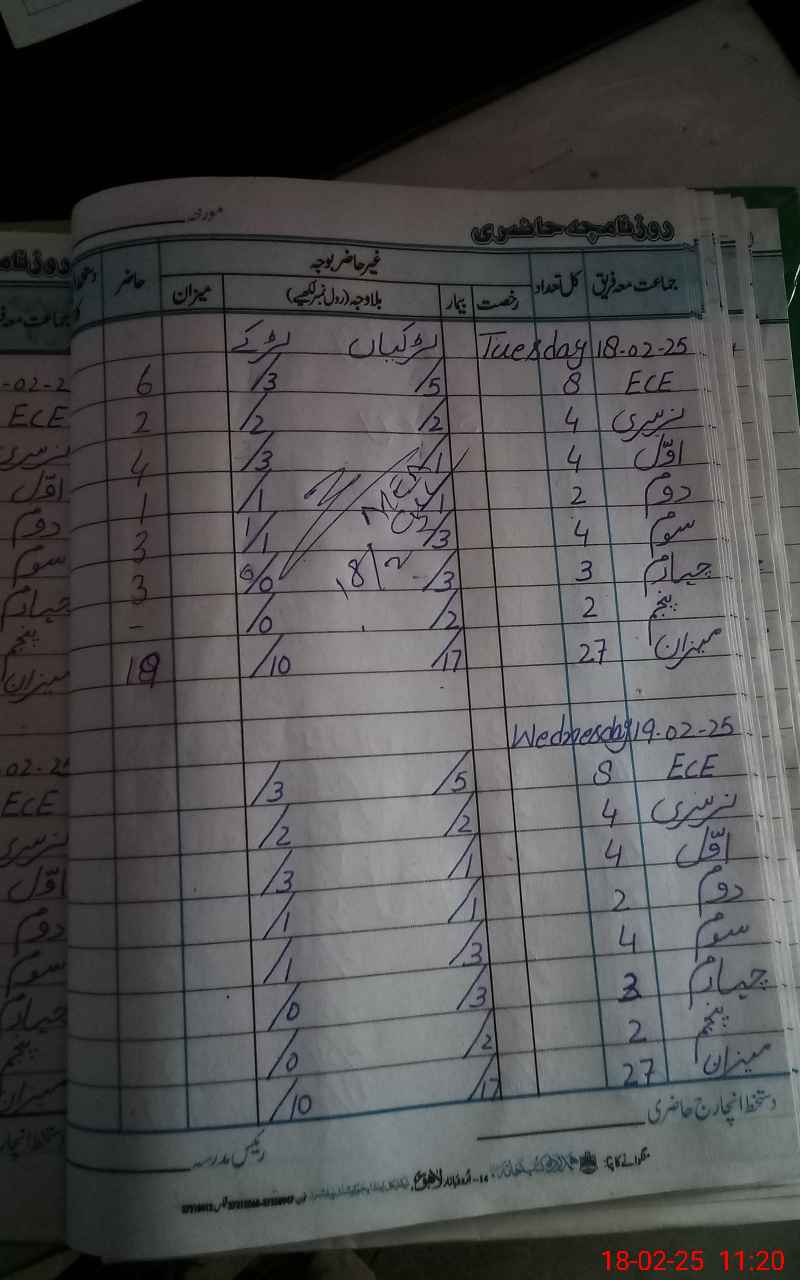 روزنامچہ حاضری مورخہ
جماعت معہ فریق کل تعداد غیر حاضر بوجہ حاضر
رخصت بیمار بلاوجہ (رول نمبر لکھیے) میزان
Tuesday 18-02-25 لڑکیاں لڑکے
ECE 8 /5 /3 6
نرسری 4 /2 /2 2
اوّل 4 /1 /3 4
دوم 2 /1 /1 1
سوم 4 /3 /1 3
چہارم 3 /3 /0 3
پنجم 2 /2 /0 -
میزان 27 /17 /10 19
Wednesday 19-02-25
ECE 8 /5 /3
نرسری 4 /2 /2
اوّل 4 /1 /3
دوم 2 /1 /1
سوم 4 /3 /1
چہارم 3 /3 /0
پنجم 2 /2 /0
میزان 27 /17 /10
دستخط انچارج حاضری
رئیس مدرسہ
منگوانے کا پتہ
18-02-25 11:20